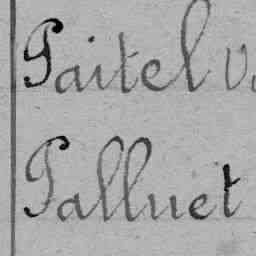 Paitel V
Palluet